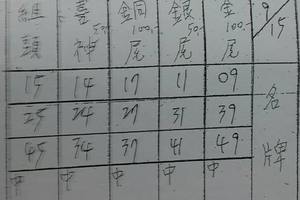 組頭 喜神 50. 銅尾 100. 銀尾 50. 金尾 100. 9/15
15 14 17 11 09
25 24 27 31 39
45 34 37 41 49
中 中 中 中 中
名牌